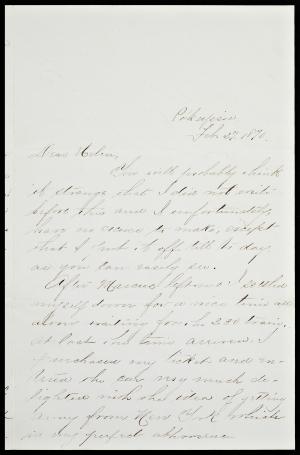 Feb. 27, 1870.
Dear Helen,
You will probably think
it strange that I did not write
before this and I unfortunately
have no excuse to make, except
that I put it off till to day
as you can easily see.
After Marcus left me I settled
myself down for a nice time all
alone waiting for the 2.30 train.
At last the train arrived. I
purchased my ticket and en-
tered the car very much de-
lighted with the idea of getting
away from New York which
is my perfect abhorrence